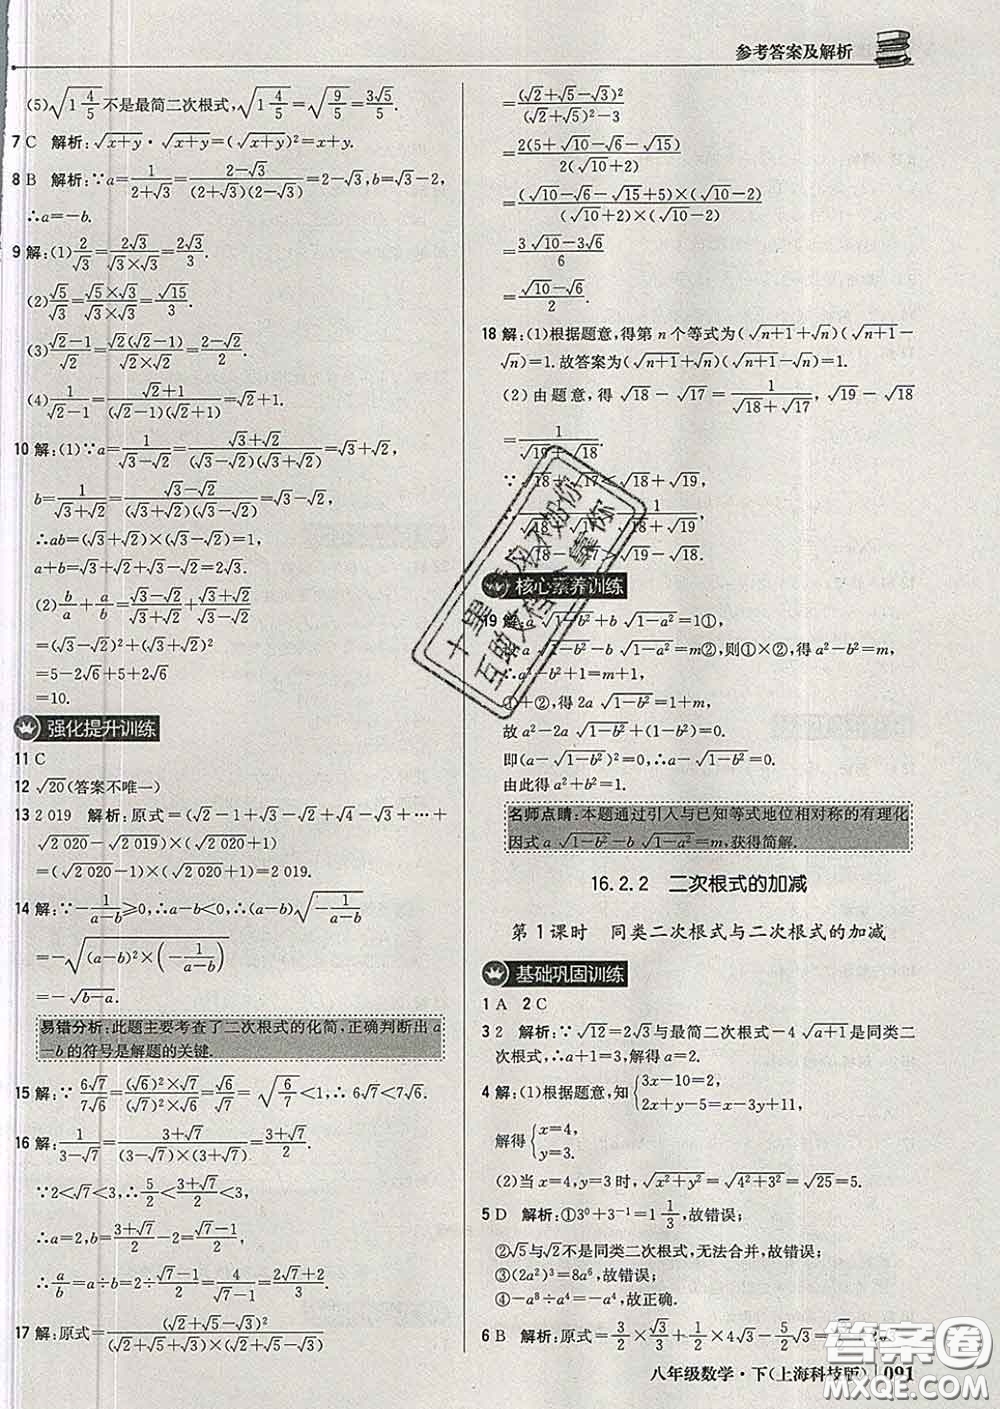 参考答案及解析
(5)√(1 4/5)不是最简二次根式,√(1 4/5)=√(9/5)=3√5/5.
7 C 解析:√(x+y)·√(x+y)=(√(x+y))²=x+y.
8 B 解析:∵a=1/(2+√3)=(2-√3)/((2+√3)(2-√3))=2-√3,b=√3-2,
∴a=-b.
9 解:(1)2/√3=2√3/(√3×√3)=2√3/3.
(2)√5/√3=(√5×√3)/(√3×√3)=√15/3.
(3)(√2-1)/√2=√2(√2-1)/(√2×√2)=(2-√2)/2.
(4)1/(√2-1)=(√2+1)/((√2-1)(√2+1))=√2+1.
10 解:(1)∵a=1/(√3-√2)=(√3+√2)/((√3-√2)(√3+√2))=√3+√2,
b=1/(√3+√2)=(√3-√2)/((√3+√2)(√3-√2))=√3-√2,
∴ab=(√3+√2)×(√3-√2)=1,
a+b=√3+√2+√3-√2=2√3.
(2)b/a+a/b=(√3-√2)/(√3+√2)+(√3+√2)/(√3-√2)
=(√3-√2)²+(√3+√2)²
=5-2√6+5+2√6
=10.
强化提升训练
11 C
12 √20(答案不唯一)
13 2 019 解析:原式=(√2-1+√3-√2+√4-√3+…+
√2 020-√2 019)×(√2 020+1)
=(√2 020-1)×(√2 020+1)=2 019.
14 解:∵-1/(a-b)≥0,∴a-b<0,∴(a-b)√(-1/(a-b))
=-√((a-b)²×(-1/(a-b)))
=-√(b-a).
易错分析:此题主要考查了二次根式的化简,正确判断出a
-b的符号是解题的关键.
15 解:∵6√7/7√6=((√6)²×√7)/((√7)²×√6)=√6/√7=√(6/7)<1,∴6√7<7√6.
16 解:1/(3-√7)=(3+√7)/((3-√7)×(3+√7))=(3+√7)/2.
∵2<√7<3,∴5/2<(3+√7)/2<3,
∴a=2,b=(3+√7)/2-2=(√7-1)/2,
∴a/b=a÷b=2÷(√7-1)/2=4/(√7-1)=(2√7+2)/3.
17 解:原式=(√2+√5-√3)²/((√2+√5+√3)×(√2+√5-√3))
=(√2+√5-√3)²/((√2+√5)²-3)
=2(5+√10-√6-√15)/(2(√10+2))
=((√10-√6-√15+5)×(√10-2))/((√10+2)×(√10-2))
=(3√10-3√6)/6
=(√10-√6)/2.
18 解:(1)根据题意,得第n个等式为(√(n+1)+√n)(√(n+1)-
√n)=1.故答案为(√(n+1)+√n)(√(n+1)-√n)=1.
(2)由题意,得√18-√17=1/(√18+√17),√19-√18
=1/(√19+√18).
∵√18+√17<√18+√19,
∴√18-√17>√19-√18.
核心素养训练
19 解:a√(1-b²)+b√(1-a²)=1①,
a√(1-b²)-b√(1-a²)=m②,则①×②,得a²-b²=m,
∴a²-b²+1=m+1,
①+②,得2a√(1-b²)=m+1,
故a²-2a√(1-b²)+(1-b²)=0.
即(a-√(1-b²))²=0,∴a=√(1-b²).
由此得a²+b²=1.
名师点睛:本题通过引入与已知等式地位相对称的有理化
因式a√(1-b²)-b√(1-a²)=m,获得简解.
16.2.2 二次根式的加减
第1课时 同类二次根式与二次根式的加减
基础巩固训练
1 A 2 C
3 2 解析:∵√12=2√3与最简二次根式-4√(a+1)是同类二
次根式,∴a+1=3,解得a=2.
4 解:(1)根据题意,知{3x-10=2,
2x+y-5=x-y+4,
解得{x=4,
y=3.
(2)当x=4,y=3时,√(x²+y²)=√(4²+3²)=√25=5.
5 D 解析:①3⁰+3⁻¹=1 1/3,故错误;
②√5与√2不是同类二次根式,无法合并,故错误;
③(2a²)³=8a⁶,故错误;
④-a⁸÷a⁴=-a⁴,故正确.
6 B 解析:原式=3/2×√3/3+1/2×4√3-√3=
八年级数学·下(上海科技版) 091
答案圈
MXQE.COM